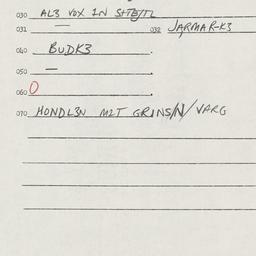 030 AL3 VOX IN
031 — 032 JARMAR-K3
040 BUDK3
050 —
060 0
070 HONDL3N MIT GRINS/N/VARG